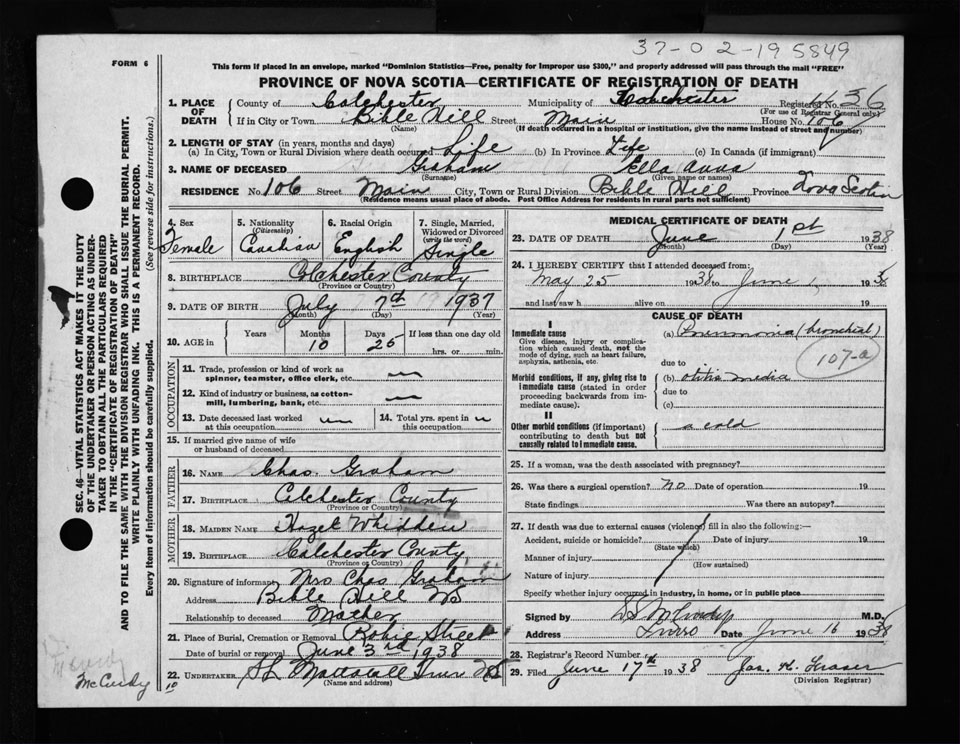 37-0 2-19 5849
FORM 6
This form if placed in an envelope, marked "Dominion Statistics—Free, penalty for improper use $300," and properly addressed will pass through the mail "FREE"
PROVINCE OF NOVA SCOTIA—CERTIFICATE OF REGISTRATION OF DEATH
1. PLACE OF DEATH
County of Colchester Municipality of Colchester Registered No. 36
(For use of Registrar General only)
If in City or Town Bible Hill Street Main House No. 106
(Name) (If death occurred in a hospital or institution, give the name instead of street and number)
2. LENGTH OF STAY (in years, months and days)
(a) In City, Town or Rural Division where death occurred Life (b) In Province Life (c) In Canada (if immigrant)
3. NAME OF DECEASED Graham Ella Anna
(Surname) (Given name or names)
RESIDENCE No. 106 Street Main City, Town or Rural Division Bible Hill Province Nova Scotia
(Residence means usual place of abode. Post Office Address for residents in rural parts not sufficient)
4. Sex Female
5. Nationality (Citizenship) Canadian
6. Racial Origin English
7. Single, Married, Widowed or Divorced (write the word) Single
8. BIRTHPLACE Colchester County
(Province or Country)
9. DATE OF BIRTH July 7th 1937
(Month) (Day) (Year)
10. AGE in Years Months 10 Days 25 If less than one day old hrs. or min.
OCCUPATION
11. Trade, profession or kind of work as spinner, teamster, office clerk, etc.
12. Kind of industry or business, as cotton-mill, lumbering, bank, etc.
13. Date deceased last worked at this occupation
14. Total yrs. spent in this occupation
15. If married give name of wife or husband of deceased
FATHER
16. NAME Chas. Graham
17. BIRTHPLACE Colchester County
(Province or Country)
MOTHER
18. MAIDEN NAME Hazel Whidden
19. BIRTHPLACE Colchester County
(Province or Country)
20. Signature of informant Mrs Chas Graham
Address Bible Hill NS
Relationship to deceased Mother
21. Place of Burial, Cremation or Removal Robie Street
Date of burial or removal June 3rd 1938
22. UNDERTAKER Mattatall Truro NS
(Name and address)
MEDICAL CERTIFICATE OF DEATH
23. DATE OF DEATH June 1st 1938
(Month) (Day) (Year)
24. I HEREBY CERTIFY that I attended deceased from:
May 25 1938 to June 1 1938
and last saw h alive on 19
CAUSE OF DEATH
I
Immediate cause
Give disease, injury or complication which caused death, not the mode of dying, such as heart failure, asphyxia, asthenia, etc.
(a) Pneumonia (bronchial)
107-a
due to
Morbid conditions, if any, giving rise to immediate cause (stated in order proceeding backwards from immediate cause).
(b) otitis media
due to
(c)
II
Other morbid conditions (if important) contributing to death but not causally related to immediate cause.
a cold
25. If a woman, was the death associated with pregnancy?
26. Was there a surgical operation? no Date of operation 19
State findings Was there an autopsy?
27. If death was due to external causes (violence) fill in also the following:—
Accident, suicide or homicide? Date of injury 19
(State which)
Manner of injury
(How sustained)
Nature of injury
Specify whether injury occurred in industry, in home, or in public place
Signed by M.D.
Address Truro Date June 16 1938
28. Registrar's Record Number
29. Filed June 17th 1938 Jas. H. Fraser
(Division Registrar)
SEC. 46—VITAL STATISTICS ACT MAKES IT THE DUTY
OF THE UNDERTAKER OR PERSON ACTING AS UNDER-
TAKER TO OBTAIN ALL THE PARTICULARS REQUIRED
IN THE "CERTIFICATE OF REGISTRATION OF DEATH"
AND TO FILE THE SAME WITH THE DIVISION REGISTRAR WHO SHALL ISSUE THE BURIAL PERMIT.
WRITE PLAINLY WITH UNFADING INK. THIS IS A PERMANENT RECORD.
Every item of information should be carefully supplied. (See reverse side for instructions.)
McCurdy
10